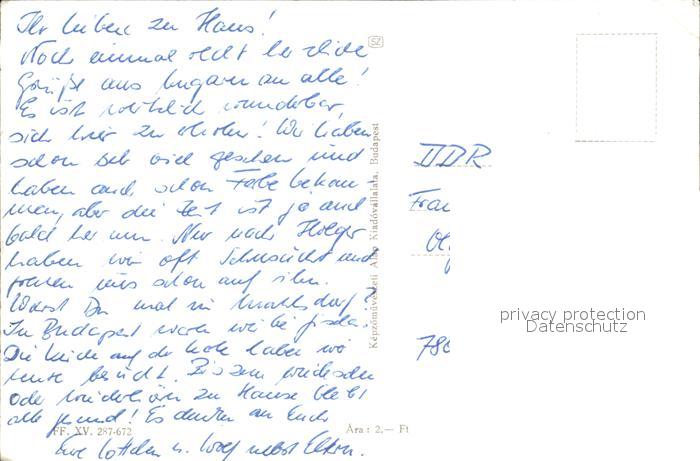 Ihr Lieben zu Haus!
Noch einmal recht herzliche
Grüße aus Ungarn an alle!
Es ist wirklich wunderbar,
sich hier zu erholen! Wir haben
schon sehr viel gesehen und
haben auch schon Farbe bekom-
men, aber die Zeit ist ja auch
bald herum. Nur nach Holger
haben wir oft Sehnsucht und
freuen uns schon auf ihn.
Warst Du mal in
In Budapest waren wir bei
Die Kirche auf der haben wir
heute besucht. Bis zum Wiedersehn
oder Wiederhören zu Hause bleibt
alle gesund! Es denken an Euch
Eure u. Wolf nebst Eltern.
FF. XV. 287-672
Ára: 2.— Ft
SZ
Képzőművészeti Alap Kiadóvállalata, Budapest
DDR
Frau
privacy protection
Datenschutz